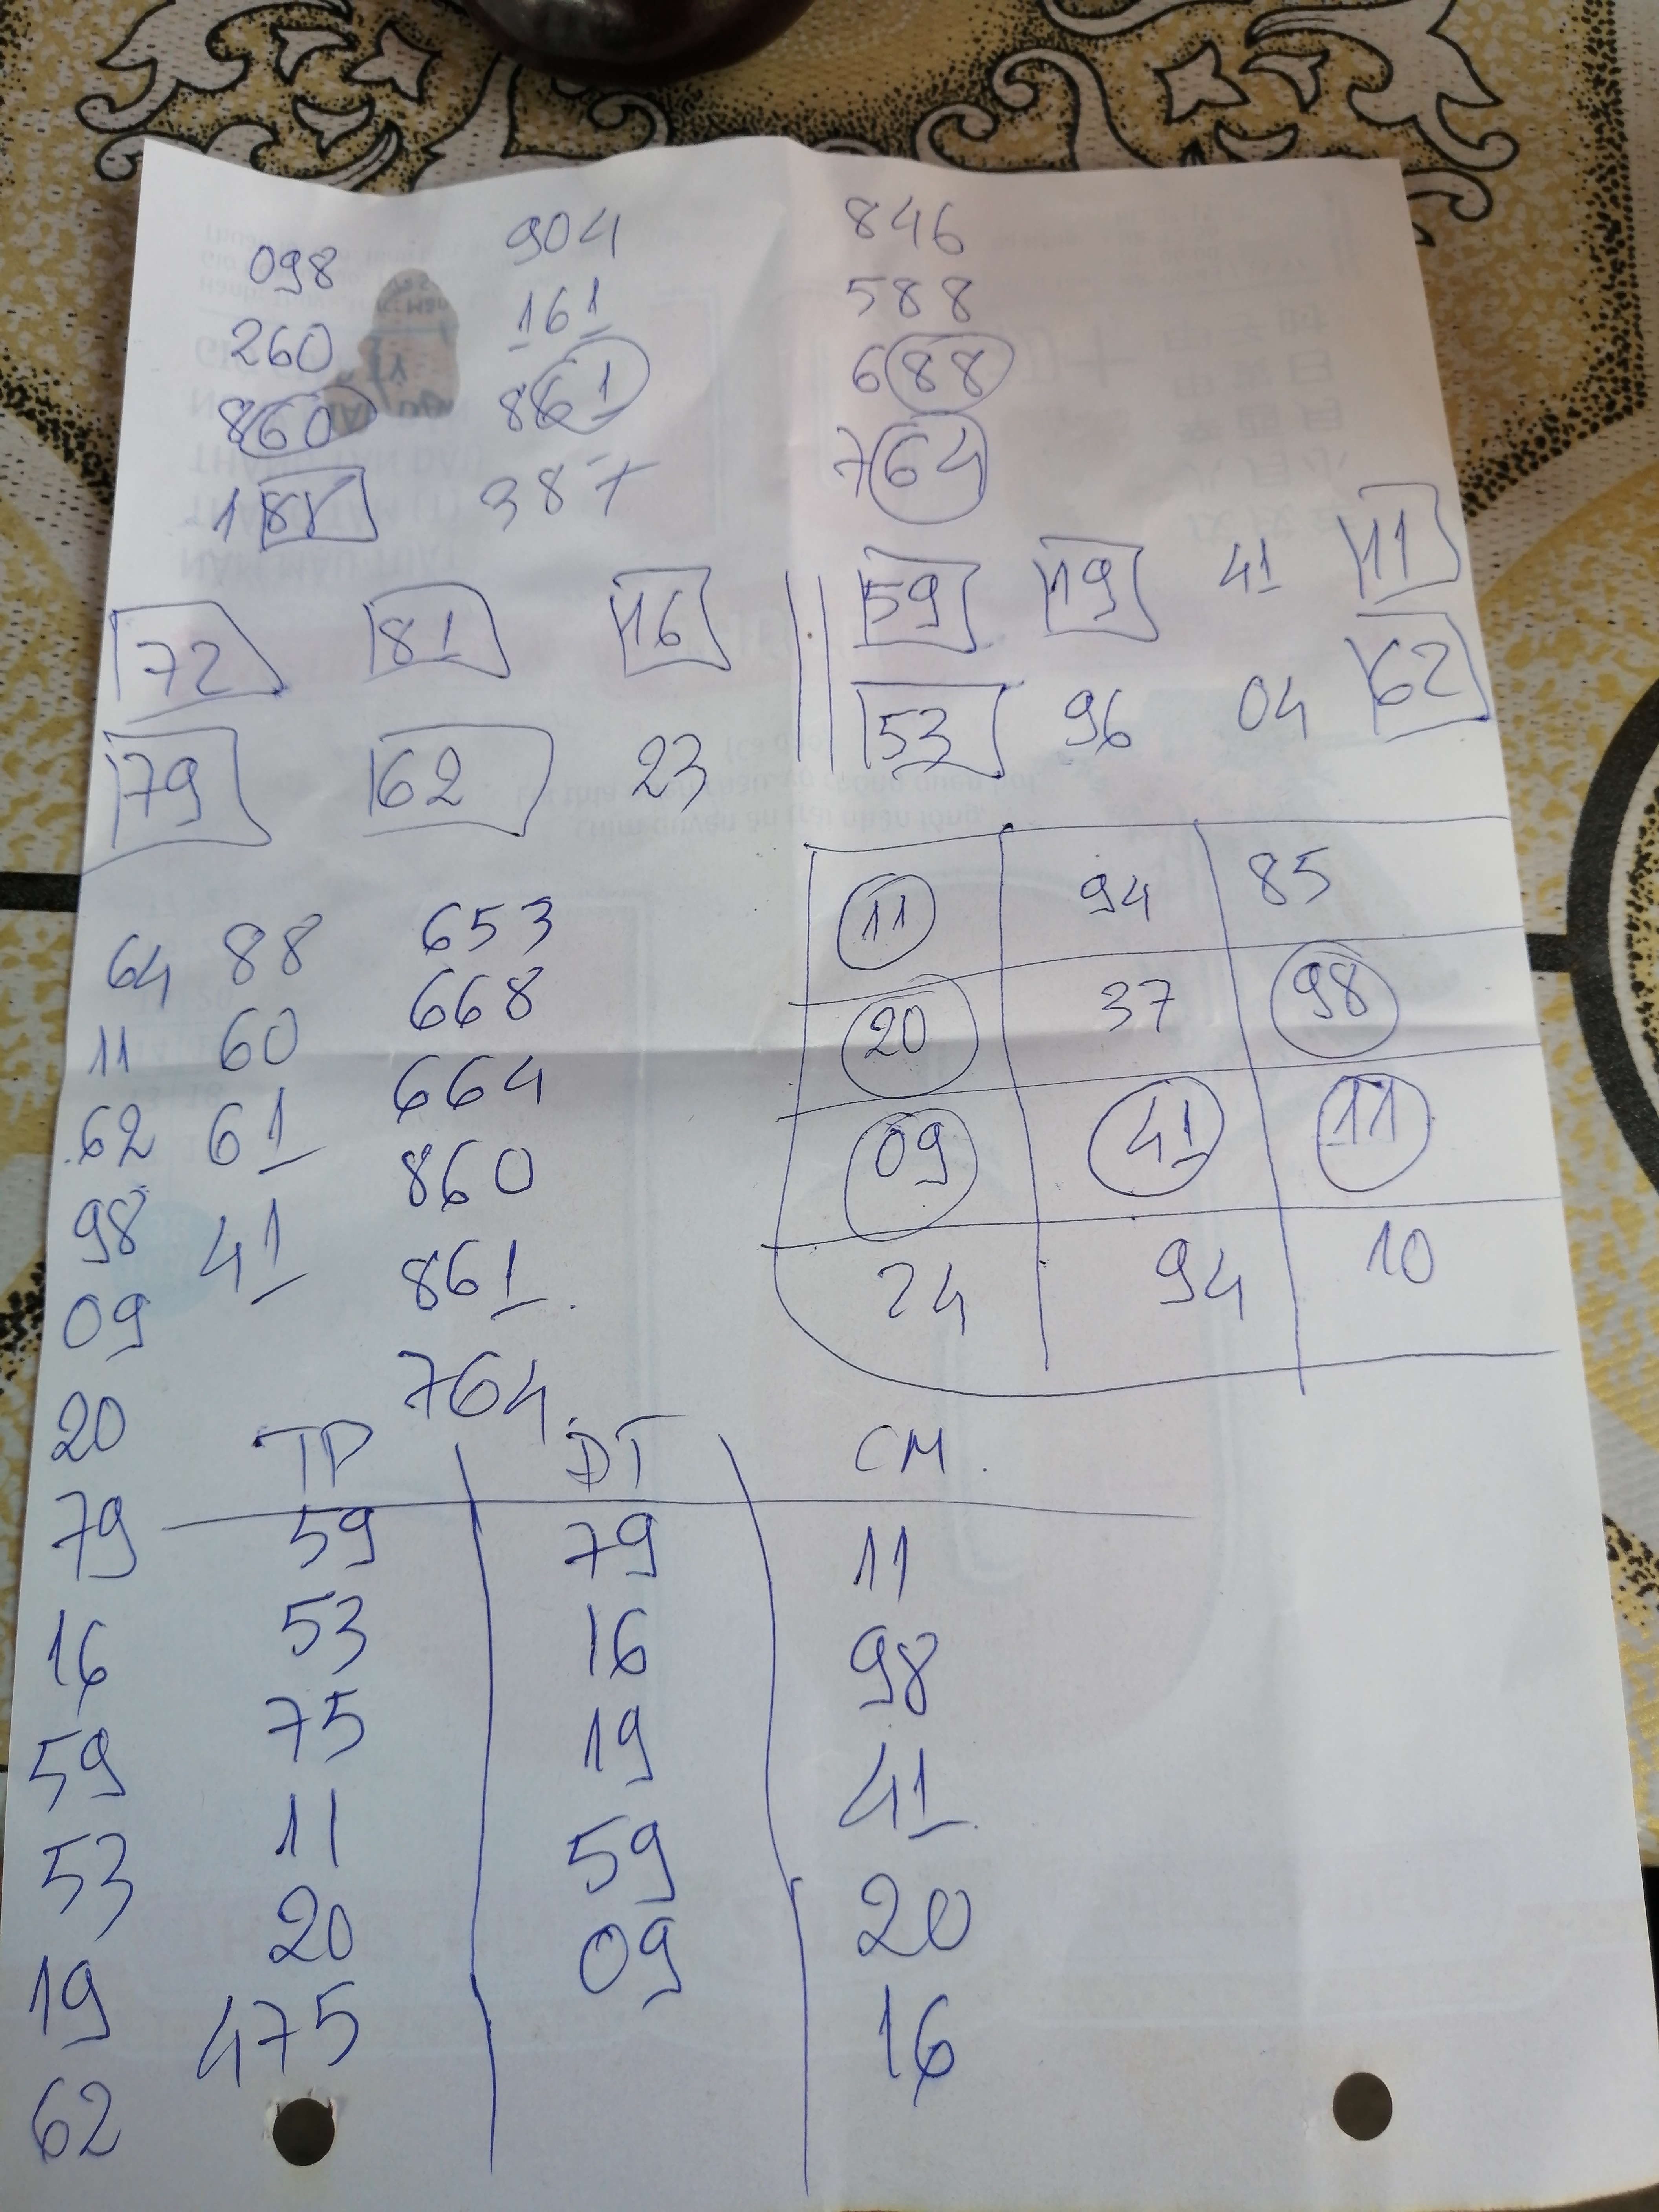 098 904 846
260 161 588
860 861 688
188 387 764
59 19 41 11
72 81 16
53 96 04 62
79 62 23
11 94 85
20 37 98
09 41 11
24 94 10
64 88 653
11 60 668
62 61 664
98 41 860
09 861
20 764
TP ĐT CM
79 59 79 11
16 53 16 98
59 75 19 41
53 11 59 20
19 20 09 16
62 475